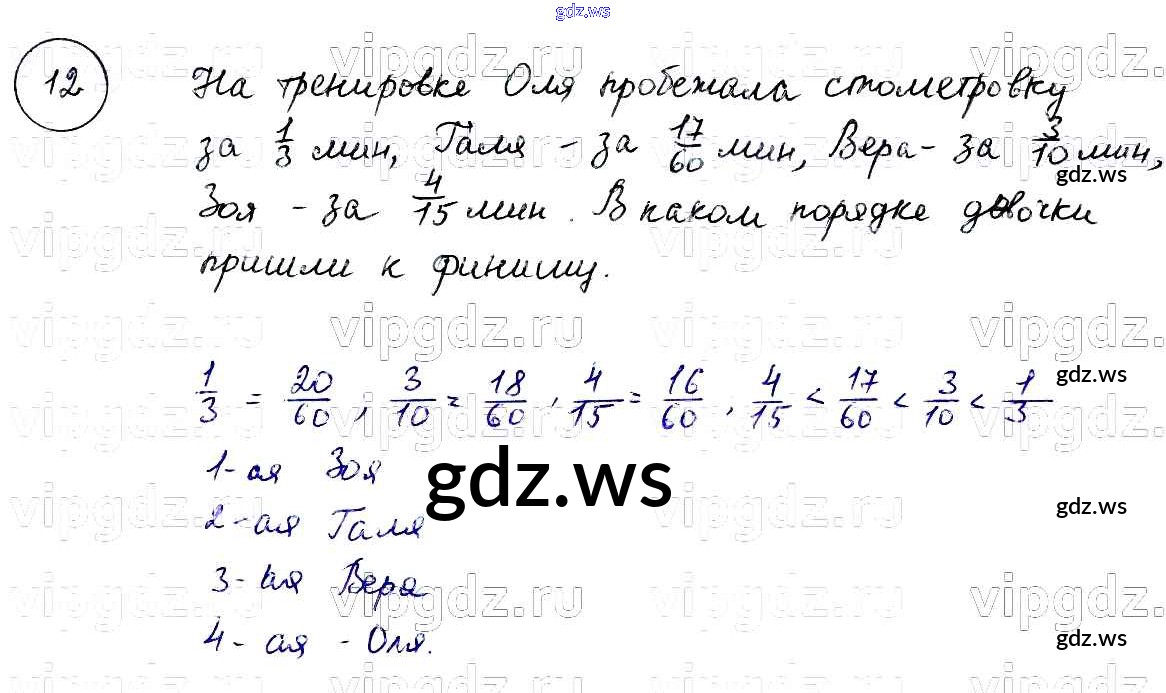 gdz.ws
12
На тренировке Оля пробежала стометровку
за 1/3 мин, Галя - за 17/60 мин, Вера - за 3/10 мин,
gdz.ws
Зоя - за 4/15 мин. В каком порядке девочки
пришли к финишу.
vipgdz.ru vipgdz.ru vipgdz.ru vipgdz.ru
1/3 = 20/60, 3/10 = 18/60, 4/15 = 16/60, 4/15 < 17/60 < 3/10 < 1/3
gdz.ws
1-ая Зоя
gdz.ws
gdz.ws
2-ая Галя
3-ая Вера
vipgdz.ru vipgdz.ru vipgdz.ru vipgdz.ru
4-ая - Оля.
gdz.ws